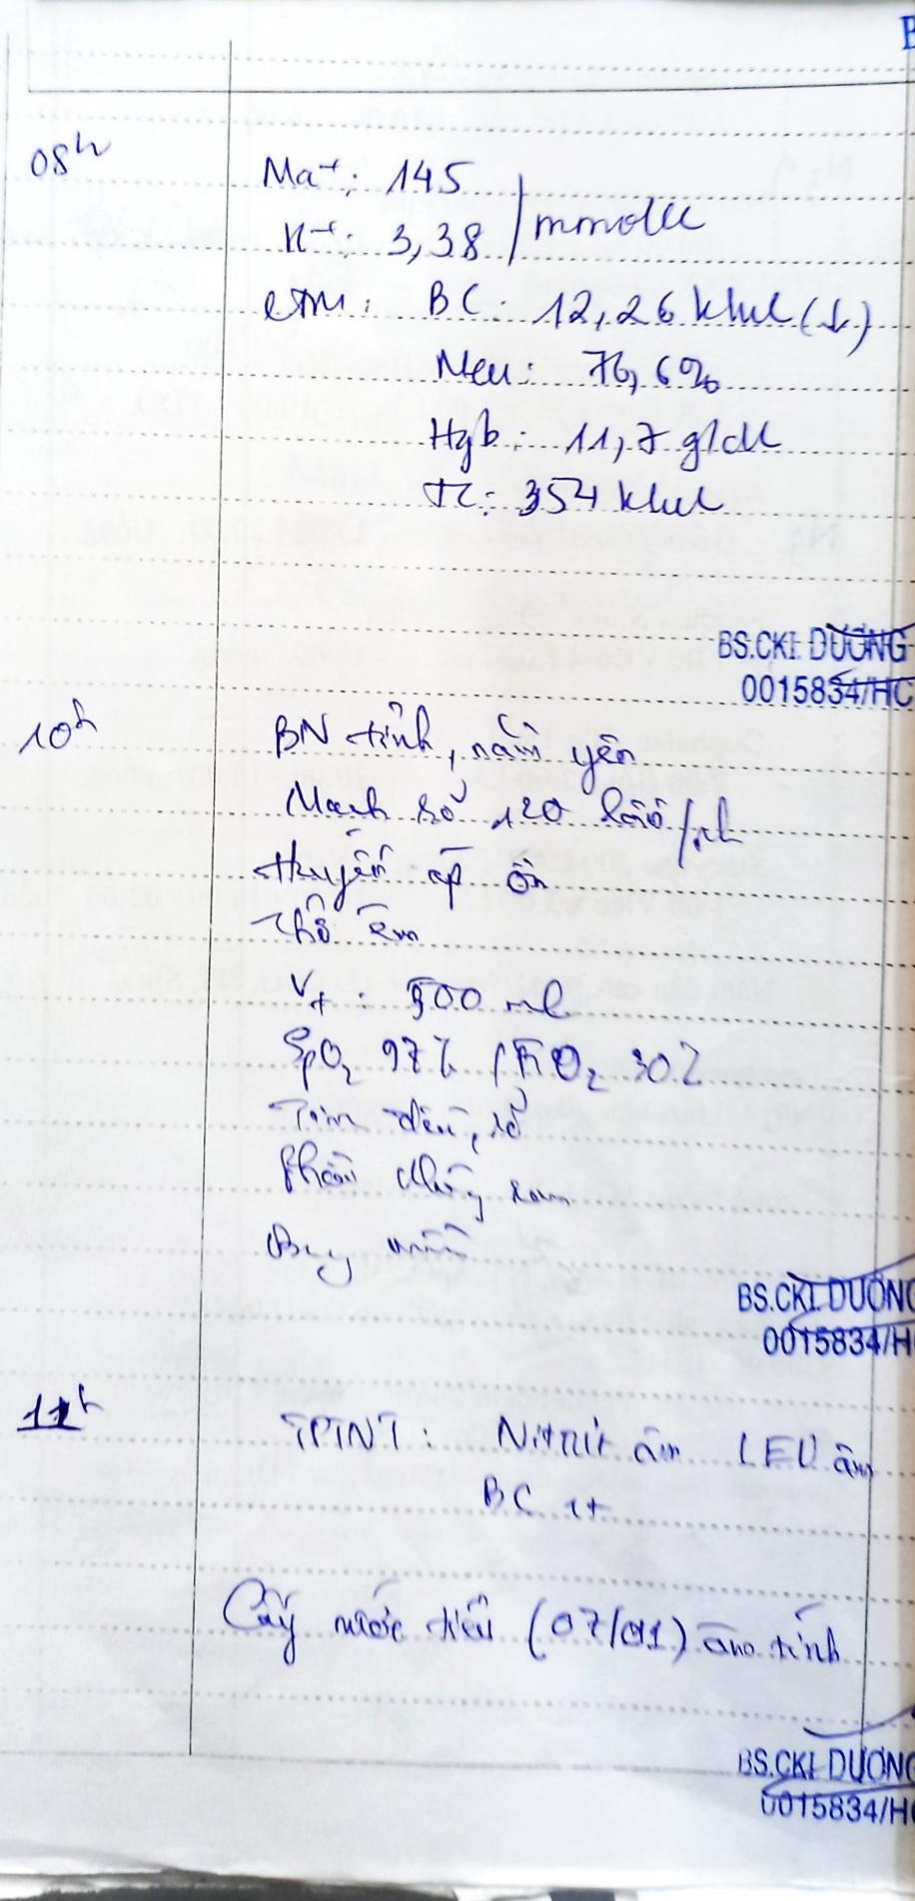 B
08h
Na+: 145
K+: 3,38 / mmol/L
CTM: BC: 12,26 k/uL (↓)
Neu: 76,6%
Hgb: 11,7 g/dL
TC: 354 k/uL
BS.CKI. DƯƠNG
0015834/HC
10h
BN tỉnh, nằm yên
Mạch rõ 120 lần/ph
Huyết áp ổn
Thở êm
Vt: 500 ml
SpO2 97% / FiO2 30%
Tim đều, rõ
Phổi không ran
Bụng mềm
BS.CKI. DƯƠNG
0015834/H
11h
TPTNT: Nitrit âm LEU âm
BC 1+
Cấy nước tiểu (07/01) âm tính
BS.CKI. DƯƠNG
0015834/H